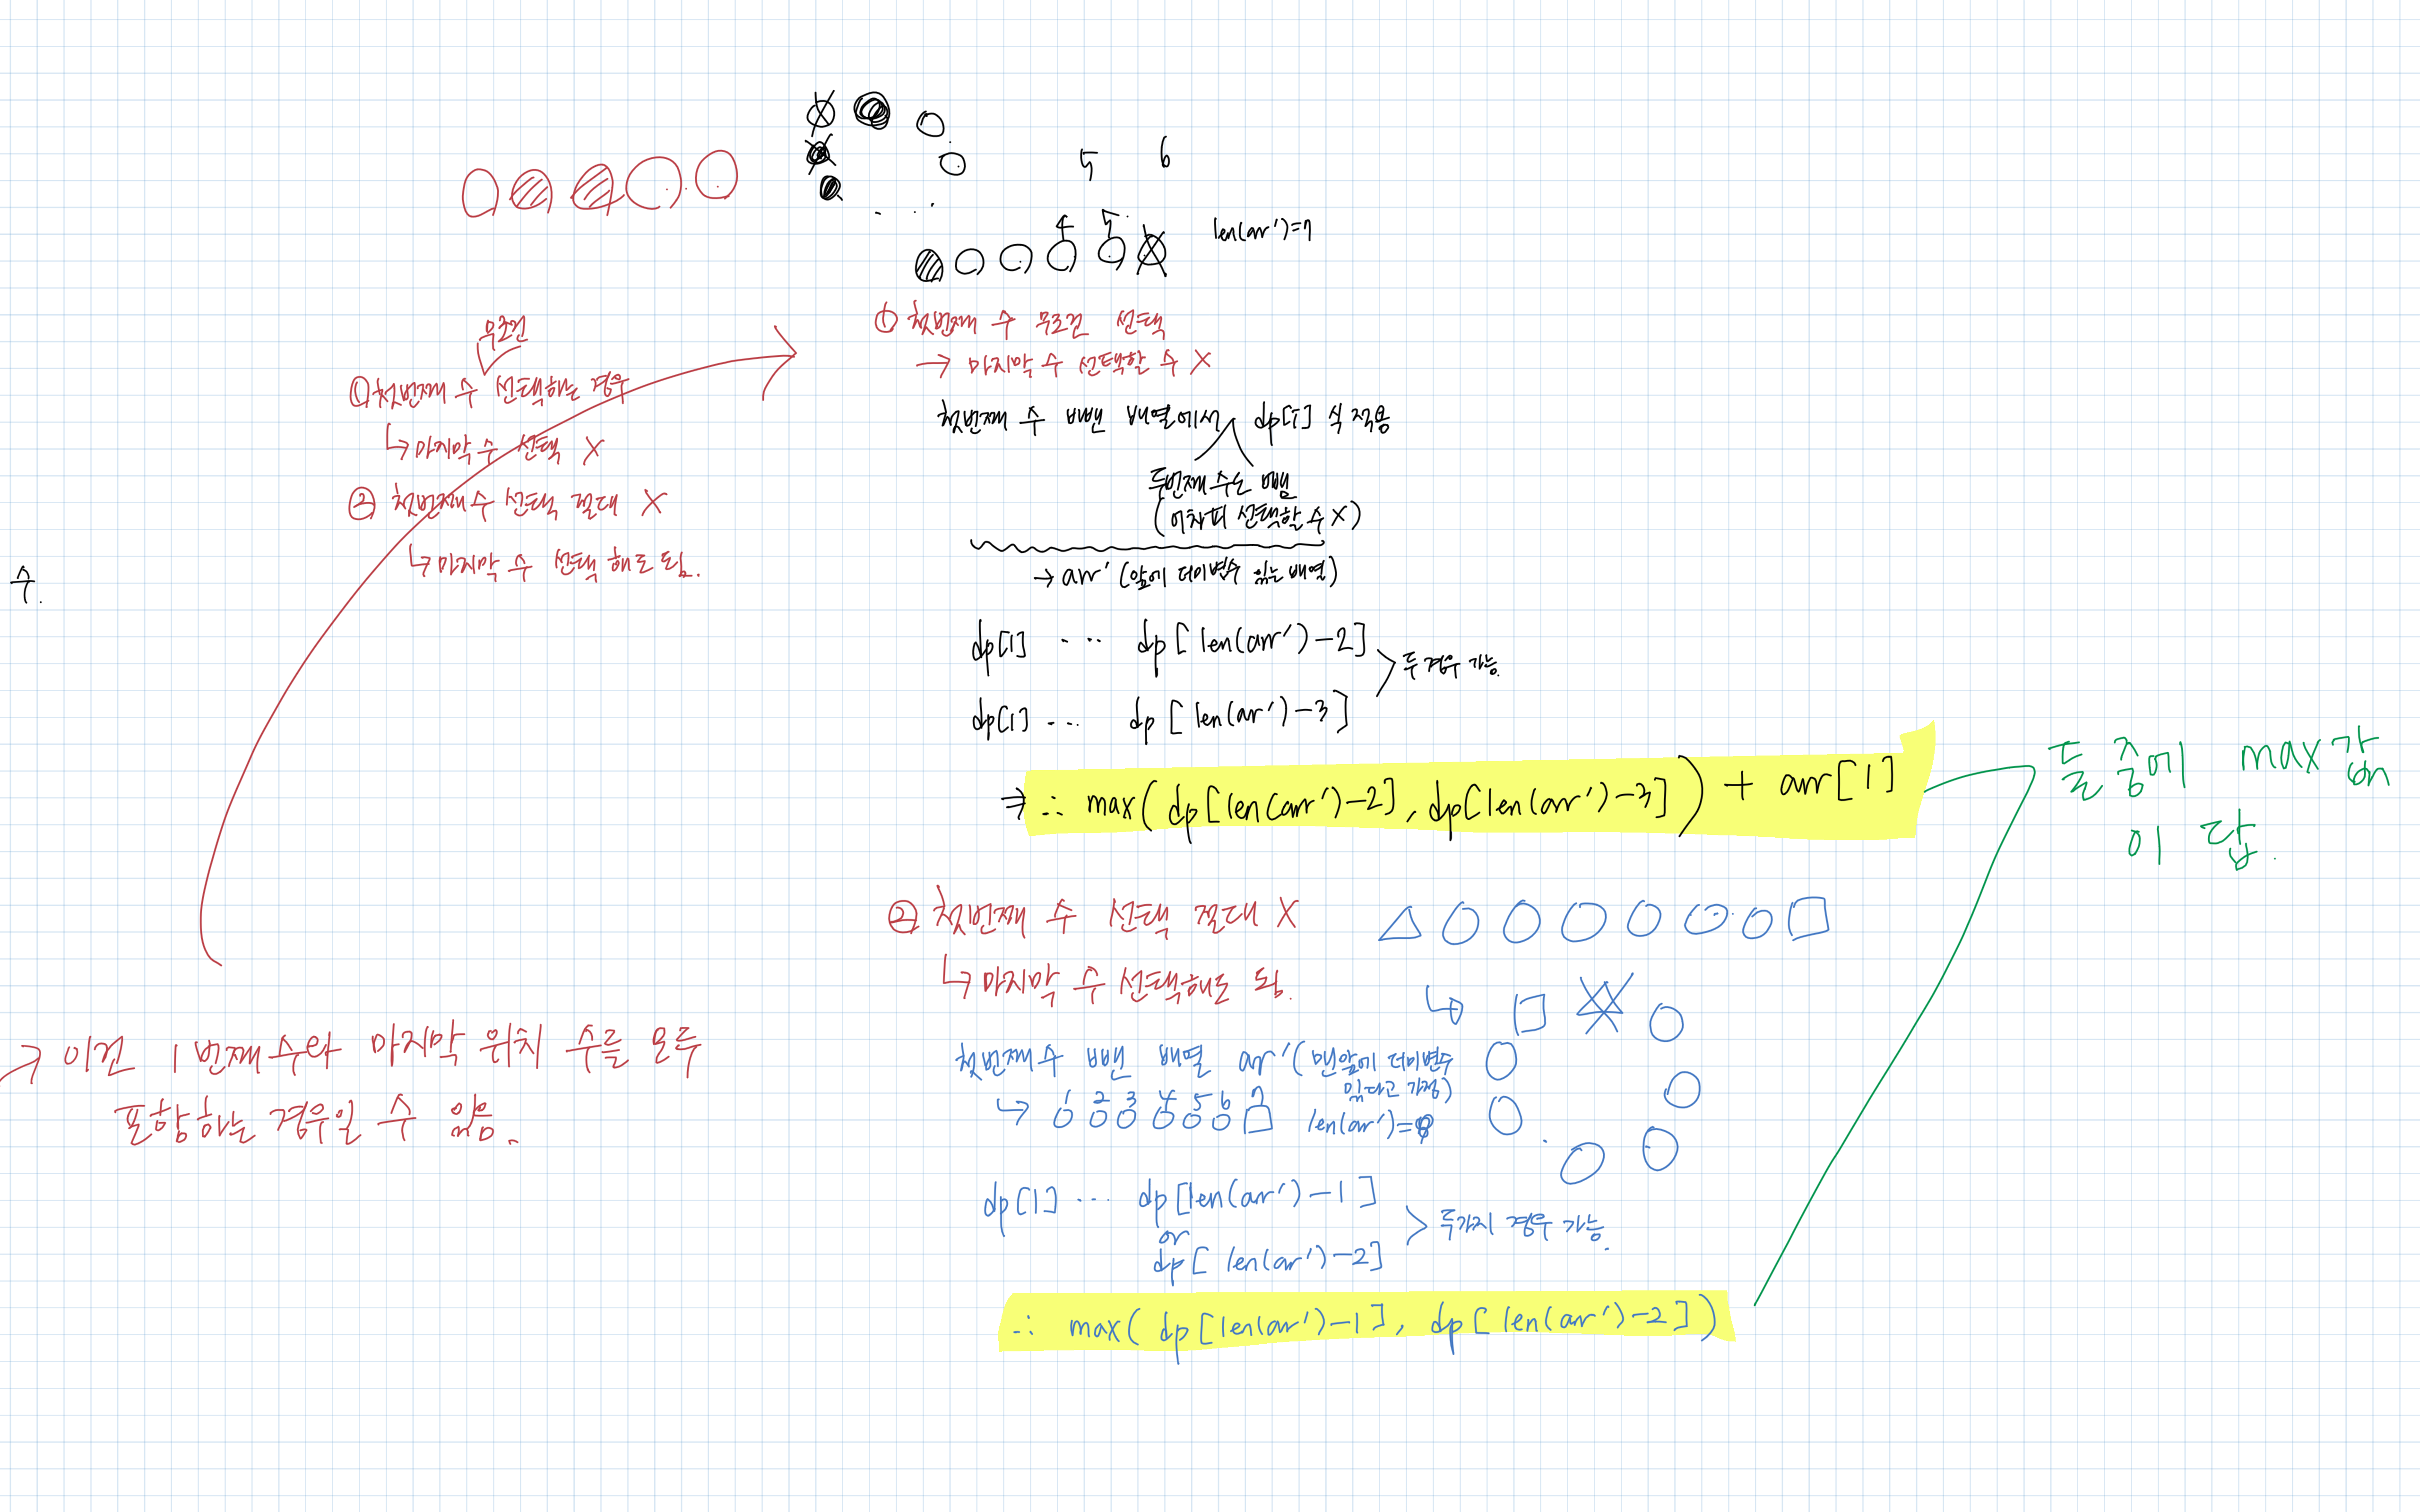 5 6
4 5
len(arr')=7
무조건
①첫번째 수 선택하는 경우
↳마지막 수 선택 X
② 첫번째 수 선택 절대 X
↳마지막 수 선택 해도 됨.
수.
→ 이건 1번째 수와 마지막 위치 수를 모두
포함하는 경우일 수 있음.
① 첫번째 수 무조건 선택
→ 마지막 수 선택할 수 X
첫번째 수 뺀 배열에서 dp[i] 식 적용
두번째 수는 뺌
(어차피 선택할 수 X)
→ arr' (앞에 더미변수 있는 배열)
dp[1] ... dp[len(arr')-2]
dp[1] ... dp[len(arr')-3]
두 경우 가능.
⇒ ∴ max(dp[len(arr')-2], dp[len(arr')-3]) + arr[1]
둘 중에 max값
이 답.
② 첫번째 수 선택 절대 X
↳마지막 수 선택해도 됨.
첫번째수 뺀 배열 arr'(맨앞에 더미변수
있다고 가정)
1 2 3 4 5 6 7
len(arr')=8
dp[1] ... dp[len(arr')-1]
or
dp[len(arr')-2]
두가지 경우 가능.
∴ max(dp[len(arr')-1], dp[len(arr')-2])